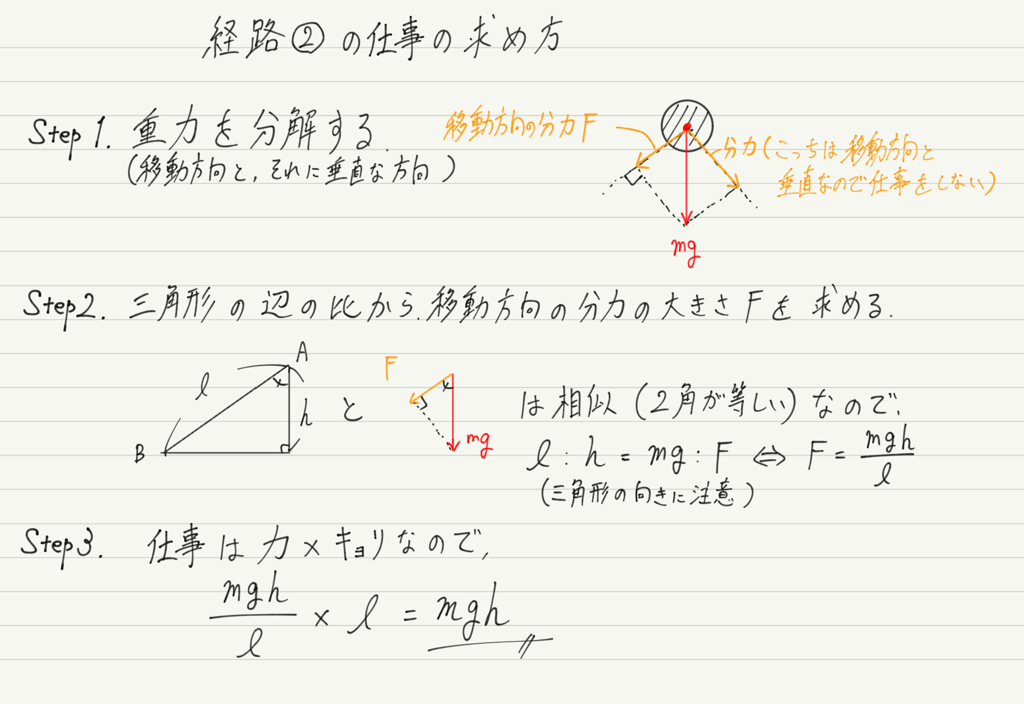 経路②の仕事の求め方
Step 1. 重力を分解する.
(移動方向と,それに垂直な方向)
移動方向の分力F
分力(こっちは移動方向と
垂直なので仕事をしない)
mg
Step2. 三角形の辺の比から,移動方向の分力の大きさFを求める.
A
l
h
B
と
F
mg
は相似(2角が等しい)なので,
l : h = mg : F ⇔ F = mgh/l
(三角形の向きに注意)
Step3. 仕事は力×キョリなので,
mgh/l × l = mgh